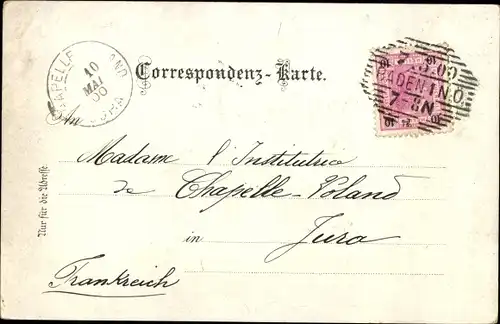 CHAPELLE VOLAND
10
MAI
00
JURA
Correspondenz-Karte.
5.00
BADEN I N.Ö.
7-8N
10 10
An
Madame l'Institutrice
de Chapelle-Voland
in Jura
Frankreich
Nur für die Adresse